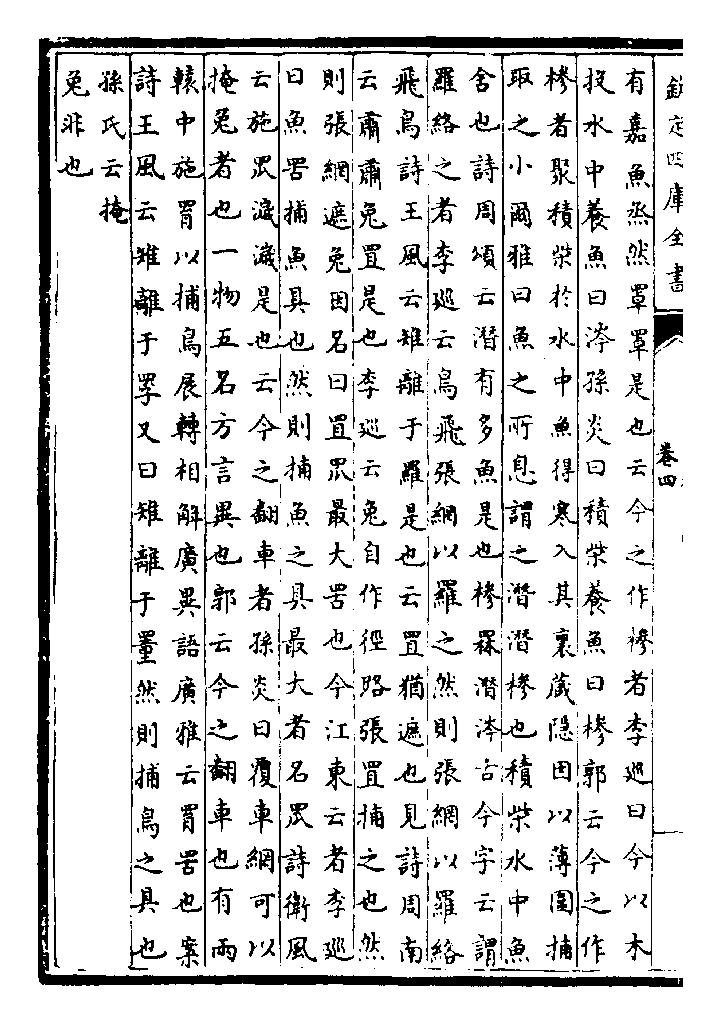 欽定四庫全書
卷四
有嘉魚烝然罩罩是也云今之作䅟者李巡曰今以木
投水中養魚曰涔孫炎曰積柴養魚曰椮郭云今之作
椮者聚積柴於水中魚得寒入其裏藏隱因以薄圍捕
取之小爾雅曰魚之所息謂之潛潛椮也積柴水中魚
舍也詩周頌云潛有多魚是也椮罧潛涔古今字云謂
羅絡之者李巡云鳥飛張網以羅之然則張網以羅絡
飛鳥詩王風云雉離于羅是也云罝猶遮也見詩周南
云肅肅兔罝是也李巡云兔自作徑路張罝捕之也然
則張網遮兔因名曰罝罛最大罟也今江東云者李巡
曰魚罟捕魚具也然則捕魚之具最大者名罛詩衛風
云施罛濊濊是也云今之翻車者孫炎曰覆車網可以
掩兔者也一物五名方言異也郭云今之翻車也有兩
轅中施罥以捕鳥展轉相解廣異語廣雅云罥罟也案
詩王風云雉離于罦又曰雉離于罿然則捕鳥之具也
孫氏云掩
兔非也